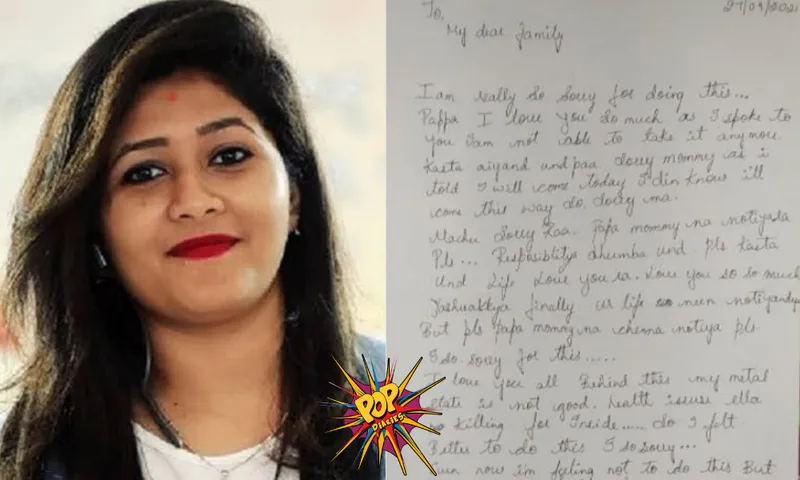 27/09/2021
To,
My dear family
I am really so sorry for doing this...
Pappa I love you so much as I spoke to
you I am not able to take it anymore.
Kasta aiyand undpaa sorry mommy as i
told I will come today I din know i'll
come this way so, sorry ma.
Machu Sorry Raa. Papa mommy na notiyada
Pls... Resposiblitys dhumba und. pls Kasta
Und Life Love you ra. Love you so so much
finally ur life neen notiyandu
But pls papa mommy na chenna notiya pls
I so sorry for this.....
I love you all Behind this my metal
state is not good. health issuse ella
killing for Inside..... so I felt
Better to do this I so sorry...
Even now i'm feeling not to do this But
POP
DIARIES